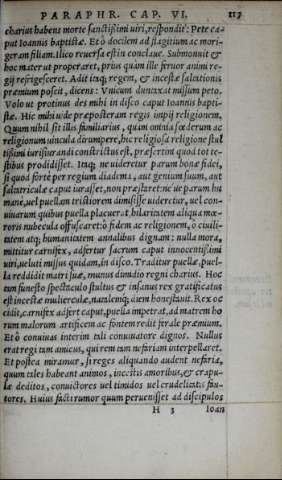 PARAPHR. CAP. VI. 113
charius habens morte sanctissimi uiri, respondit: Pete ca⸗
put Ioannis baptistæ. Et ò docilem ad flagitium ac mori⸗
geram filiam. Ilico reuersa est in conclaue. Submonuit &
hoc mater ut properaret, prius quàm ille feruor animi re⸗
gij refrigesceret. Adit itaq; regem, & incestæ saltationis
præmium poscit, dicens: Vnicum duntaxat missum peto.
Volo ut protinus des mihi in disco caput Ioannis bapti⸗
stæ. Hic mihi uide præposteram regis impij religionem,
Quum nihil sit illis familiarius, quàm omnia fœderum ac
religionum uincula dirumpere, hic religiosa religione stul
tissimi iurisiurandi constrictus est, præsertim quod tot te⸗
stibus prodidisset. Itaq; ne uideretur parum bonæ fidei,
si quod fortè per regium diadema, aut genium suum, aut
saltatriculæ caput iurasset, non præstaret: ne ue parum hu
manè, uel puellam tristiorem dimisisse uideretur, uel con⸗
uiuarum quibus puella placuerat, hilaritatem aliqua mœ⸗
roris nubecula offuscaret: ò fidem ac religionem, ò ciuili⸗
tatem atq; humanitatem annalibus dignam: nulla mora,
mittitur carnifex, adfertur sacrum caput innocentissimi
uiri, ueluti missus quidam, in disco. Traditur puellæ, puel⸗
la reddidit matri suæ, munus dimidio regni charius. Hoc
tam funesto spectaculo stultus & insanus rex gratificatus
est incestæ mulierculæ, natalemq; diem honestauit. Rex oc
cidit, carnifex adfert caput, puella impetrat, ad matrem ho
rum malorum artificem ac fontem redit ferale præmium.
Et ò conuiuas interim tali conuiuatore dignos. Nullus
erat regi tam amicus, qui rem tam nefariam interpellaret.
Et postea miramur, si reges aliquando audent nefaria,
quum tales habeant animos, incestis amoribus, & crapu⸗
læ deditos, conuictores uel timidos uel crudelitatis fau⸗
tores. Huius facti rumor quum peruenisset ad discipulos
H 3 Ioan